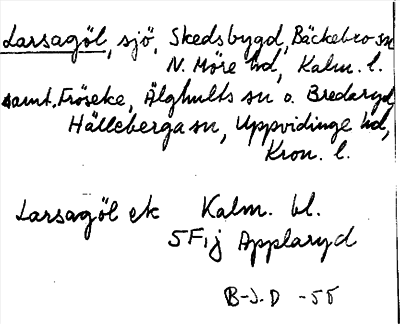 Larsagöl, sjö, Skedsbygd, Bäckebo sn
N. Möre hd, Kalm. l.
samt. Fröseke, Älghults sn o. Bredaryd
Hälleberga sn, Uppvidinge hd,
Kron. l.
Larsagöl ek Kalm. bl.
5F1j Applaryd
B-J.D -55